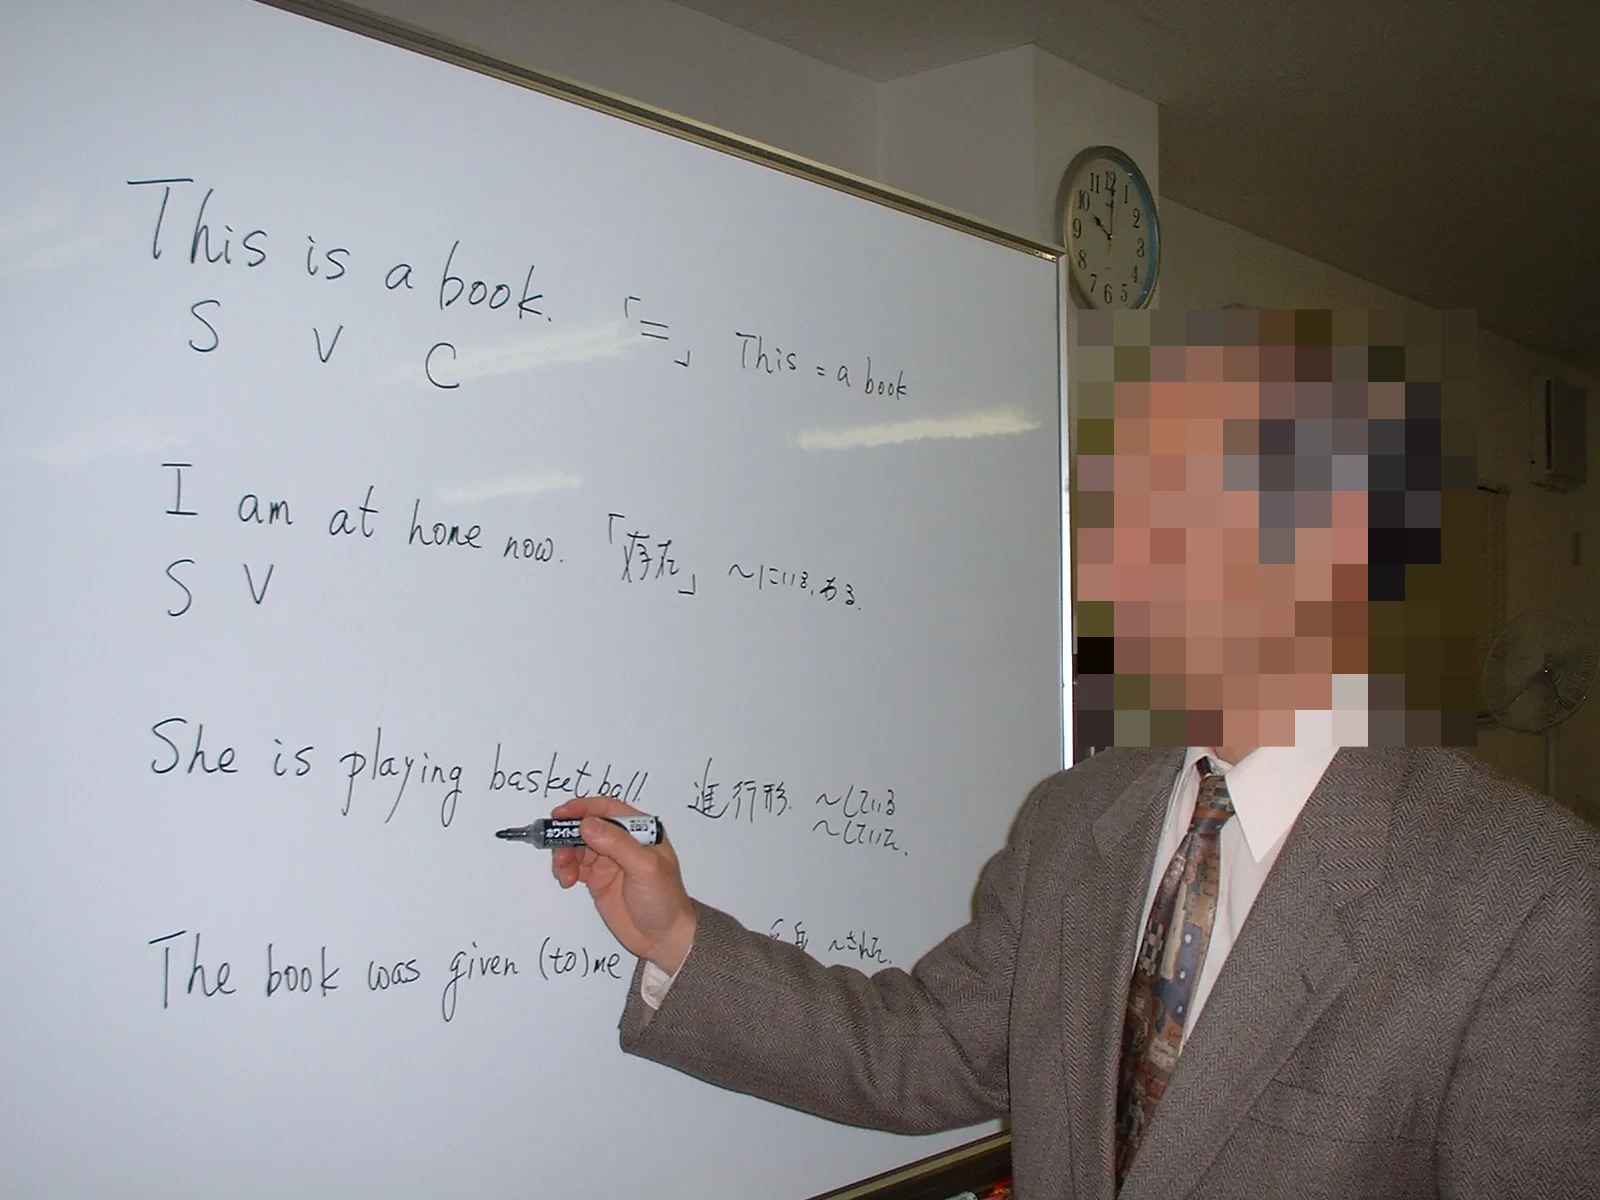 This is a book. 「=」 This = a book
S V C
I am at home now. 「存在」 ~にいる, ある.
S V
She is playing basketball. 進行形. ~している
~していた.
The book was given (to) me ~された.
ホワイトボ
11 12 1
10 2
9 3
8 4
7 6 5